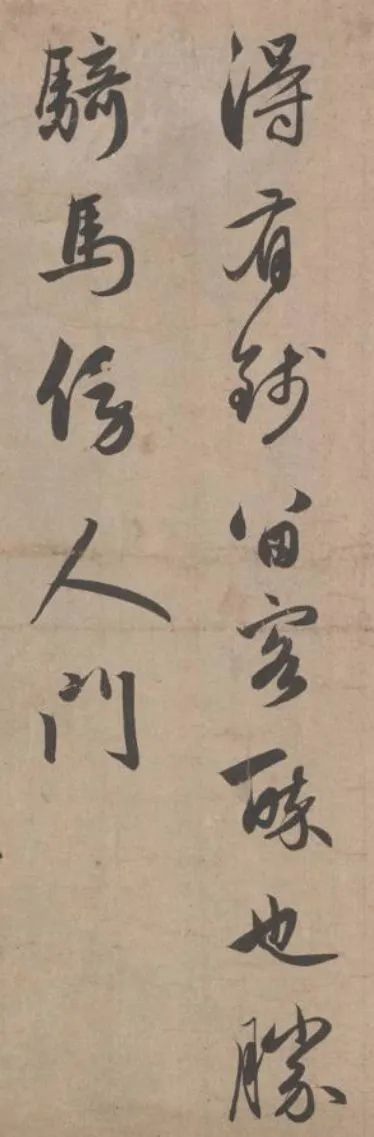 得有錢留客醉也勝
騎馬傍人門